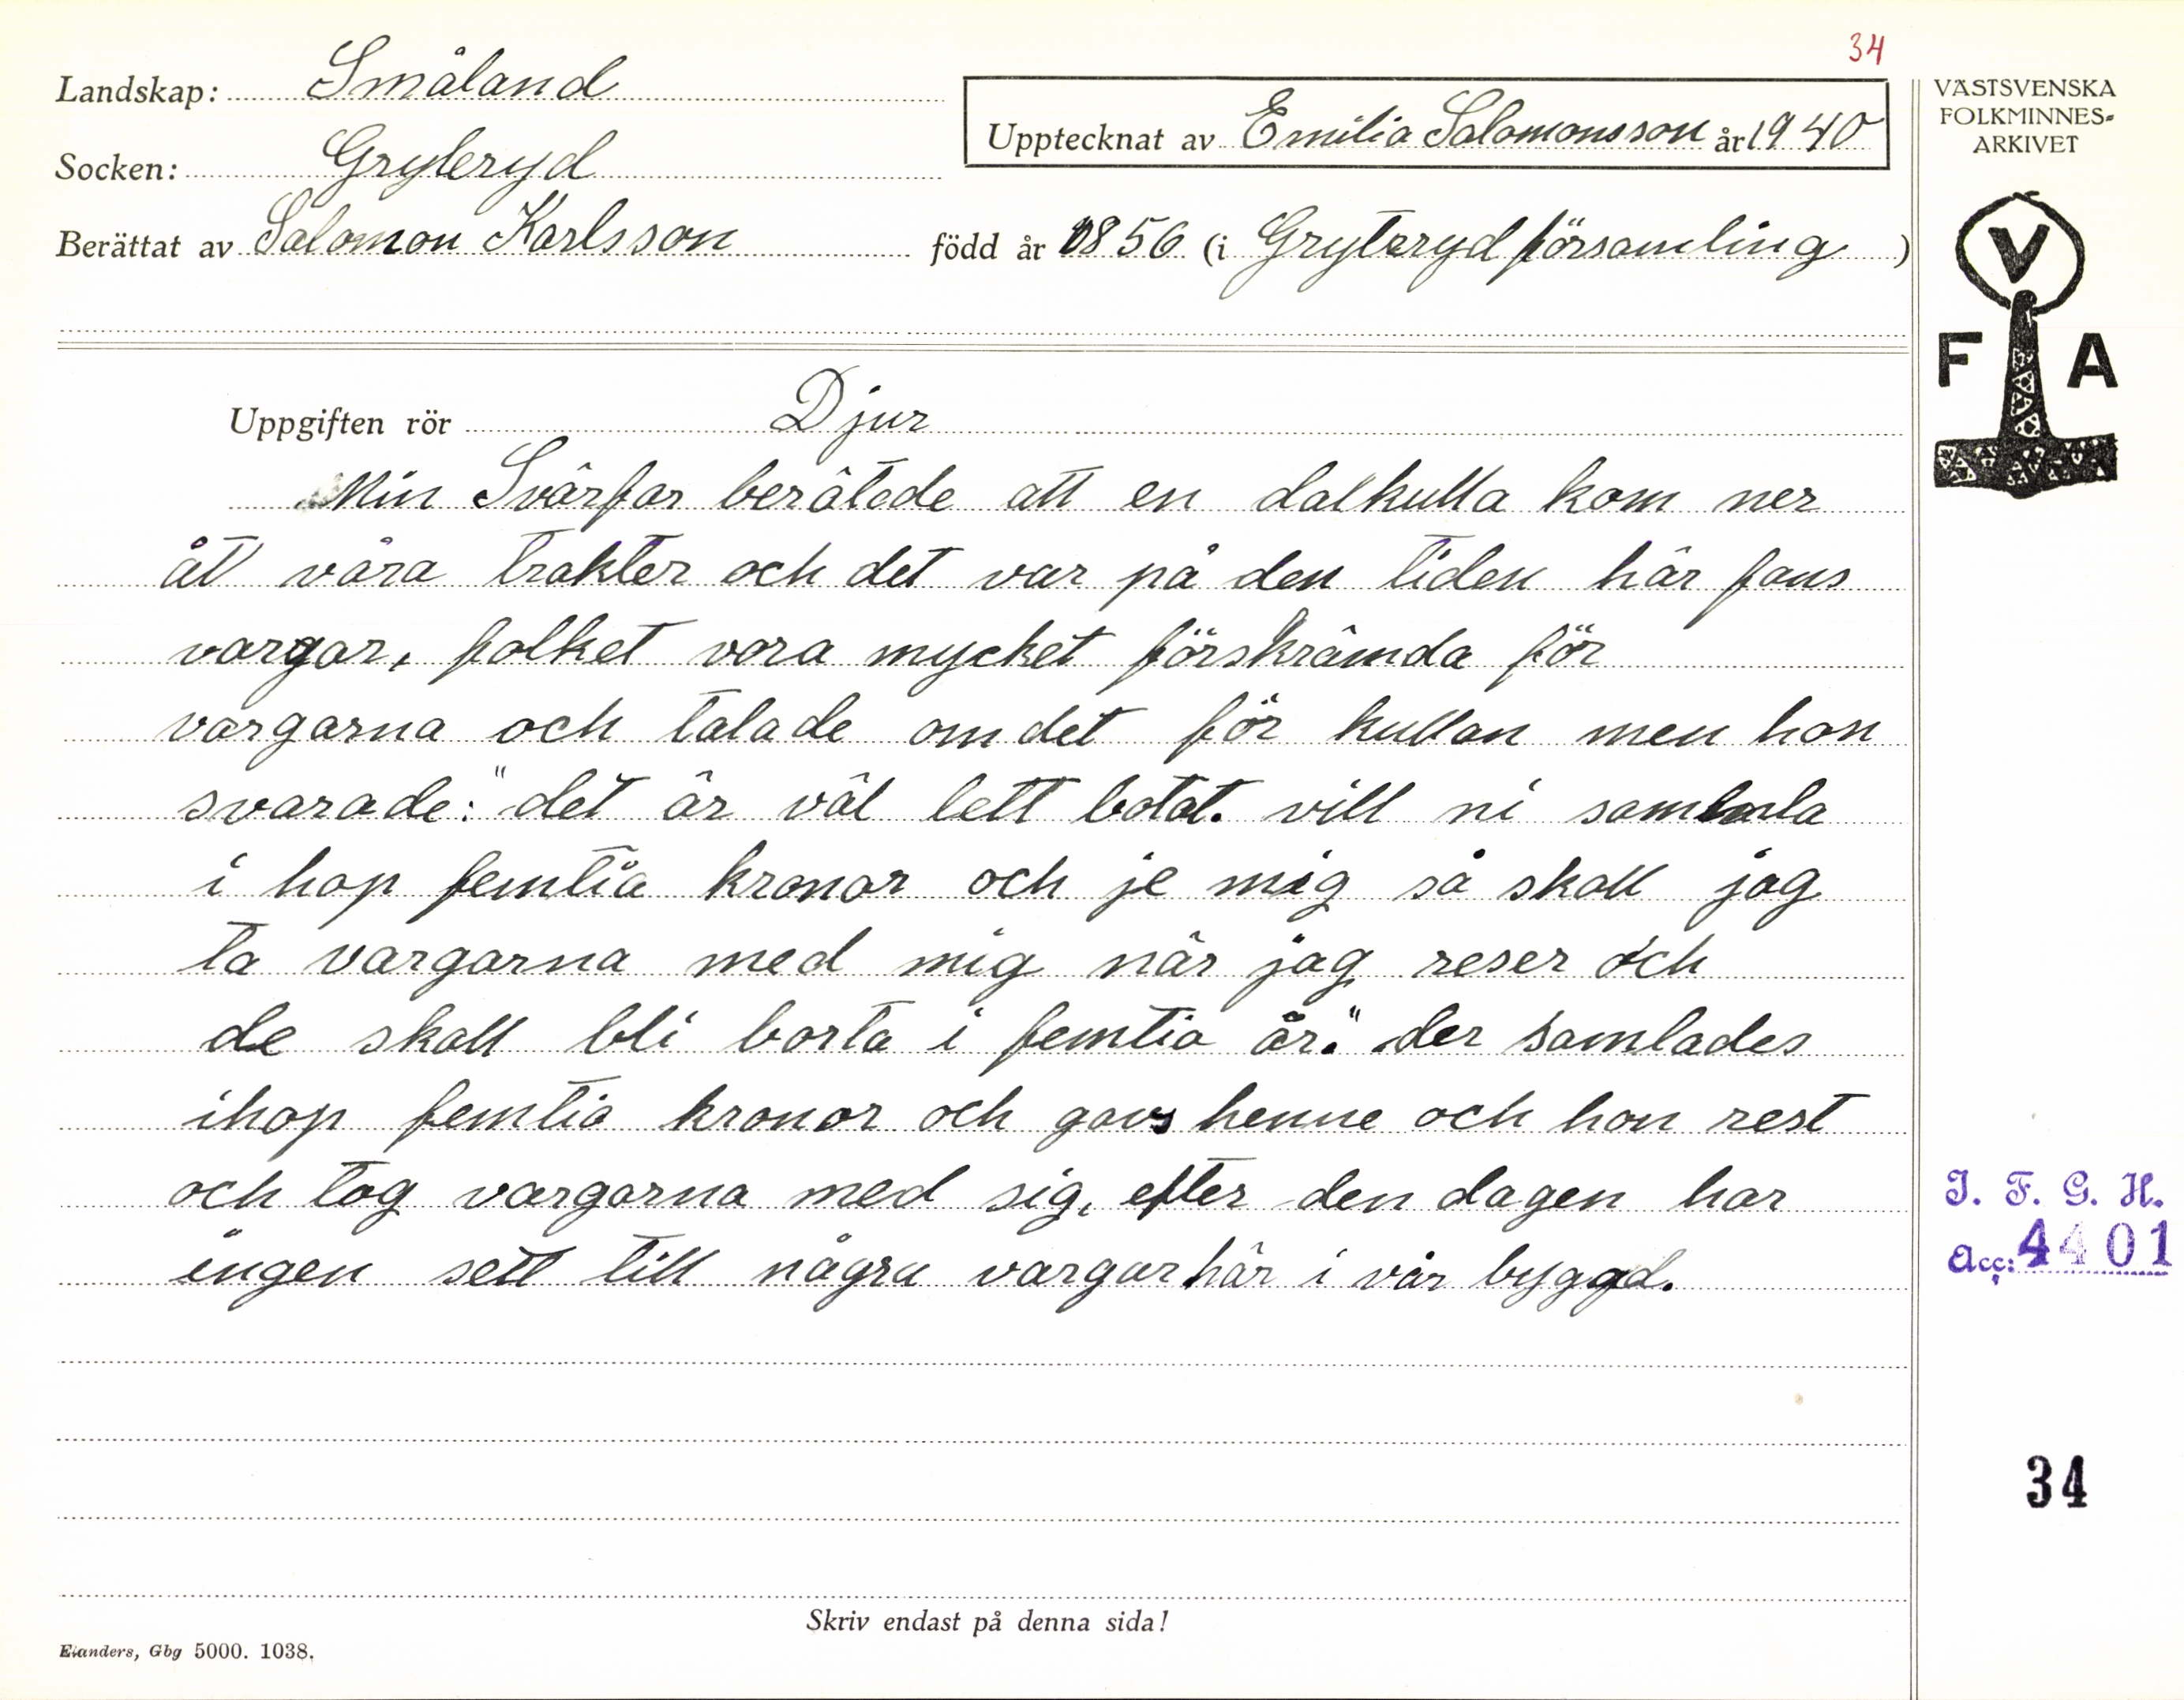 34
Landskap: Småland
Upptecknat av Emilia Salomonsson år 1940
Socken: Gryteryd
Berättat av Salomon Karlsson född år 1856 (i Gryteryd församling)
Uppgiften rör Djur
Min Svärfar berätade att en dalkulla kom ner
åt våra trakter och det var på den tiden här fans
vargar, folket vora mycket förskrämda för
vargarna och talade om det för kullan men hon
svarade: "det är väl lett botat. vill ni samla
i hop femtia kronor och je mig så skall jag
ta vargarna med mig när jag reser och
de skall bli borta i femtio år." der samlades
ihop femtio kronor och gavs henne och hon rest
och tog vargarna med sig, efter den dagen har
ingen sett till några vargar här i vår byggd.
Skriv endast på denna sida!
Elanders, Gbg 5000. 1038.
VÄSTSVENSKA
FOLKMINNES-
ARKIVET
V
F A
I. F. G. H.
Acc: 4401
34